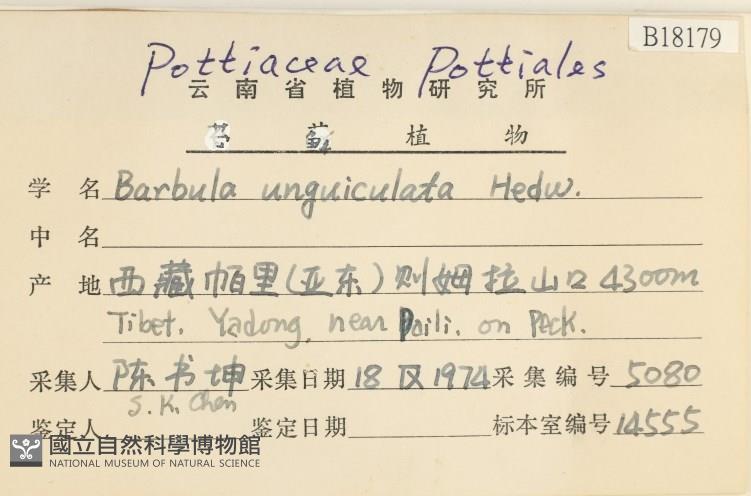 B18179
Pottiaceae Pottiales
云南省植物研究所
苔藓植物
学名 Barbula unguiculata Hedw.
中名
产地 西藏帕里(亚东)则姆拉山口 4300m
Tibet. Yadong, near Paili. on Peck.
采集人 陈书坤 采集日期 18 IX 1974 采集编号 5080
S. K. Chen
鉴定人 鉴定日期 标本室编号 14555
國立自然科學博物館
NATIONAL MUSEUM OF NATURAL SCIENCE